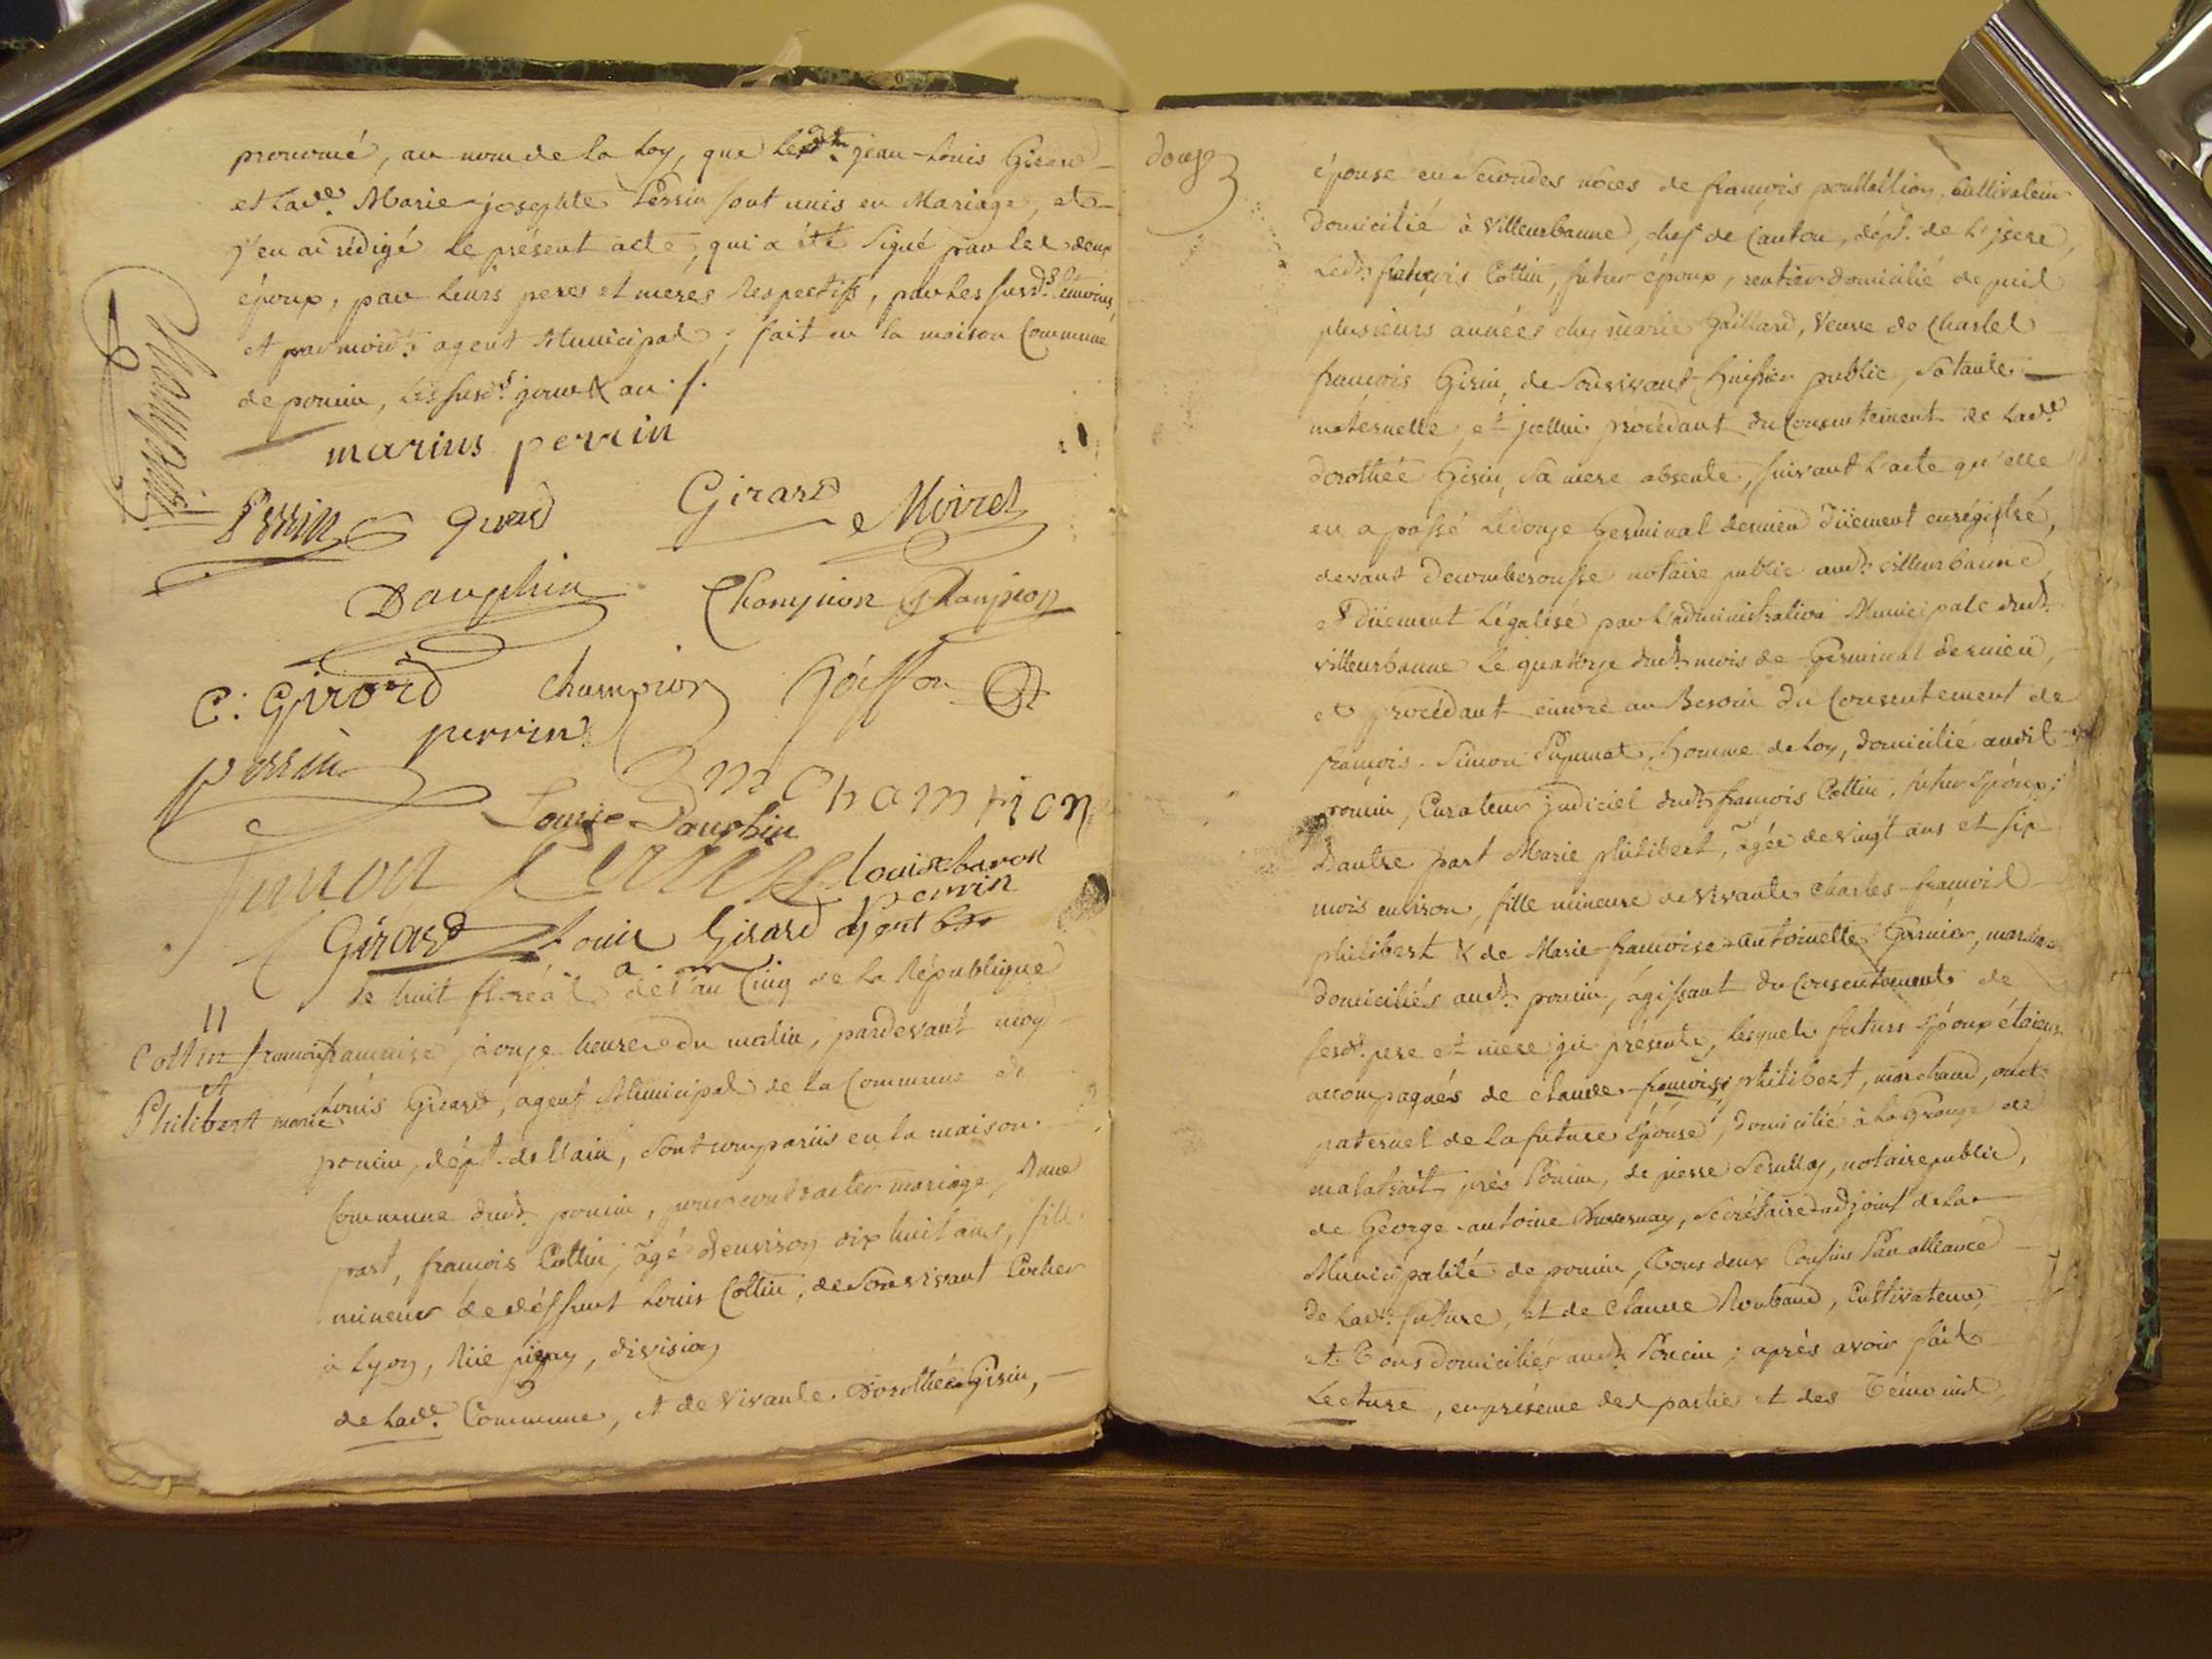 prononcé, au nom de la Loy, que led. jean-Louis Girard
et Lade. Marie-josephte Perrin sont unis en Mariage, et
j'en ai rédigé le présent acte, qui a été signé par les deux
époux, par leurs peres et meres respectifs, par les susds. témoins,
et par moid. agent Municipal; fait en la maison Commune
de poncin, les susds. jour & an ./.
marius perrin
Perrin Girard Girard Moiret
Dauphin Champion Champion
C: Girard Champion Goiffon
perrin
perrin
m Champion
Louise Dauphin
Simon
louise baron
perrin
Girard Louis Girard agent
Le huit floréal de l'an Cinq de la République
11
Cottin francois
et
Philibert marie
francaise, à onze heures du matin, pardevant moy
Louis Girard, agent Municipal de la Commune de
poncin, dépt. de l'ain, sont comparüs en la maison
Commune dud. poncin, pour contracter mariage, D'une
part, francois Cottin, âgé D'environ dix huit ans, fils
mineur de déffunt Louis Cottin, de Son vivant Cocher
à Lyon, Rüe pizay, division
de Lade. Commune, et de vivante Dorothée Girin,
douze
épouse en Secondes nôces de francois, cultivateur
domicilié à Villeurbanne, chef de Canton, dépt. de L'jsere,
Led. francois Cottin, futur époux, rentier domicilié depuis
plusieurs années chez marie Gaillard, Veuve de Charles
francois Girin, de Son vivant huissier public, Sa tante
maternelle, et jcellui procédant du Consentement de Lade.
dorothée Girin, Sa mere absente, suivant L'acte qu'elle
en a passé le donze Germinal dernier düement enrégistré,
devant Decomberousse notaire public aud. villeurbanne
et düement Légalisé par L'administration Municipale dud.
villeurbanne le quatorze dud. mois de Germinal dernier,
et procédant encore au Besoin du Consentement de
francois-Simon, homme de Loy, domicilié audit
poncin, Curateur judiciel dud. francois Cottin, futur Epoux;
D'autre part Marie philibert, âgée de vingt ans et six
mois environ, fille mineure de vivants Charles-francois
philibert & de Marie-francoise-antoinette Garnier, marchands
domiciliés aud. poncin, agissant du Consentement de
sesd. pere et mere ici présents, Lesquels futurs Epoux étoient
accompagnés de claude-francois philibert, marchand, oncle
paternel de la future Epouse, domicilié à la Grange de
malatrait près Poncin, de pierre, notaire public,
de George-antoine, Secrétaire adjoint de La
Municipalité de poncin, Tous deux Cousins Par alliance
de Lade. future, et de Claude Roubaud, Cultivateur,
et Tous domiciliés aud. Poncin; après avoir fait
Lecture, en présence des parties et des Témoins